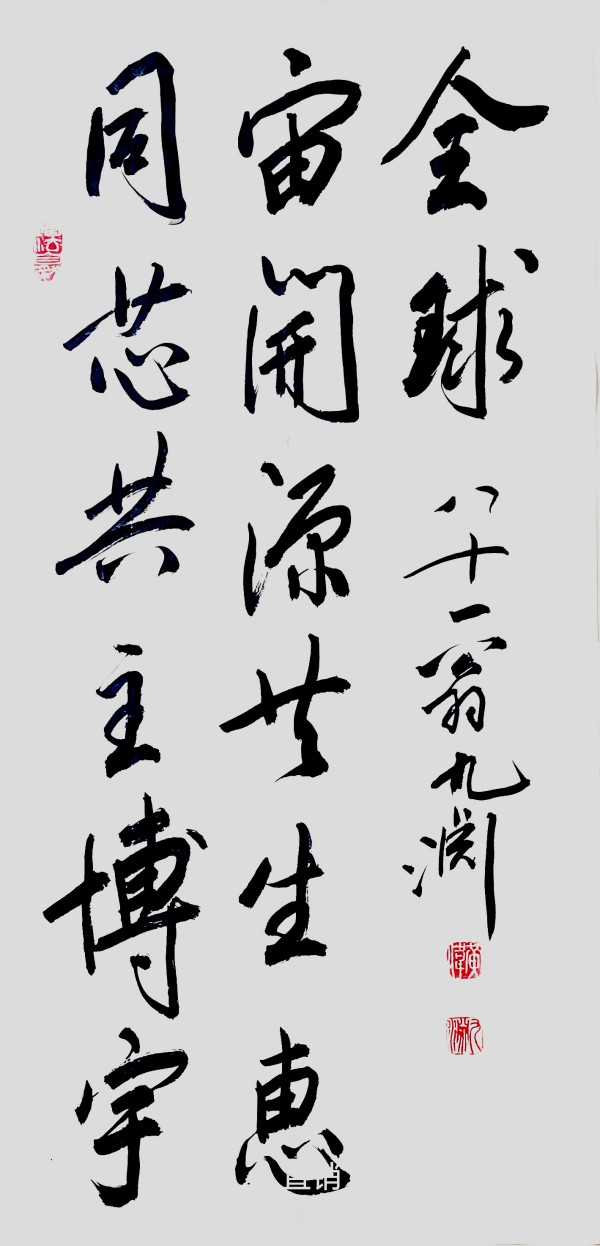 同芯共主博宇
宙開源共生惠
全球
八十一翁九渊
直销